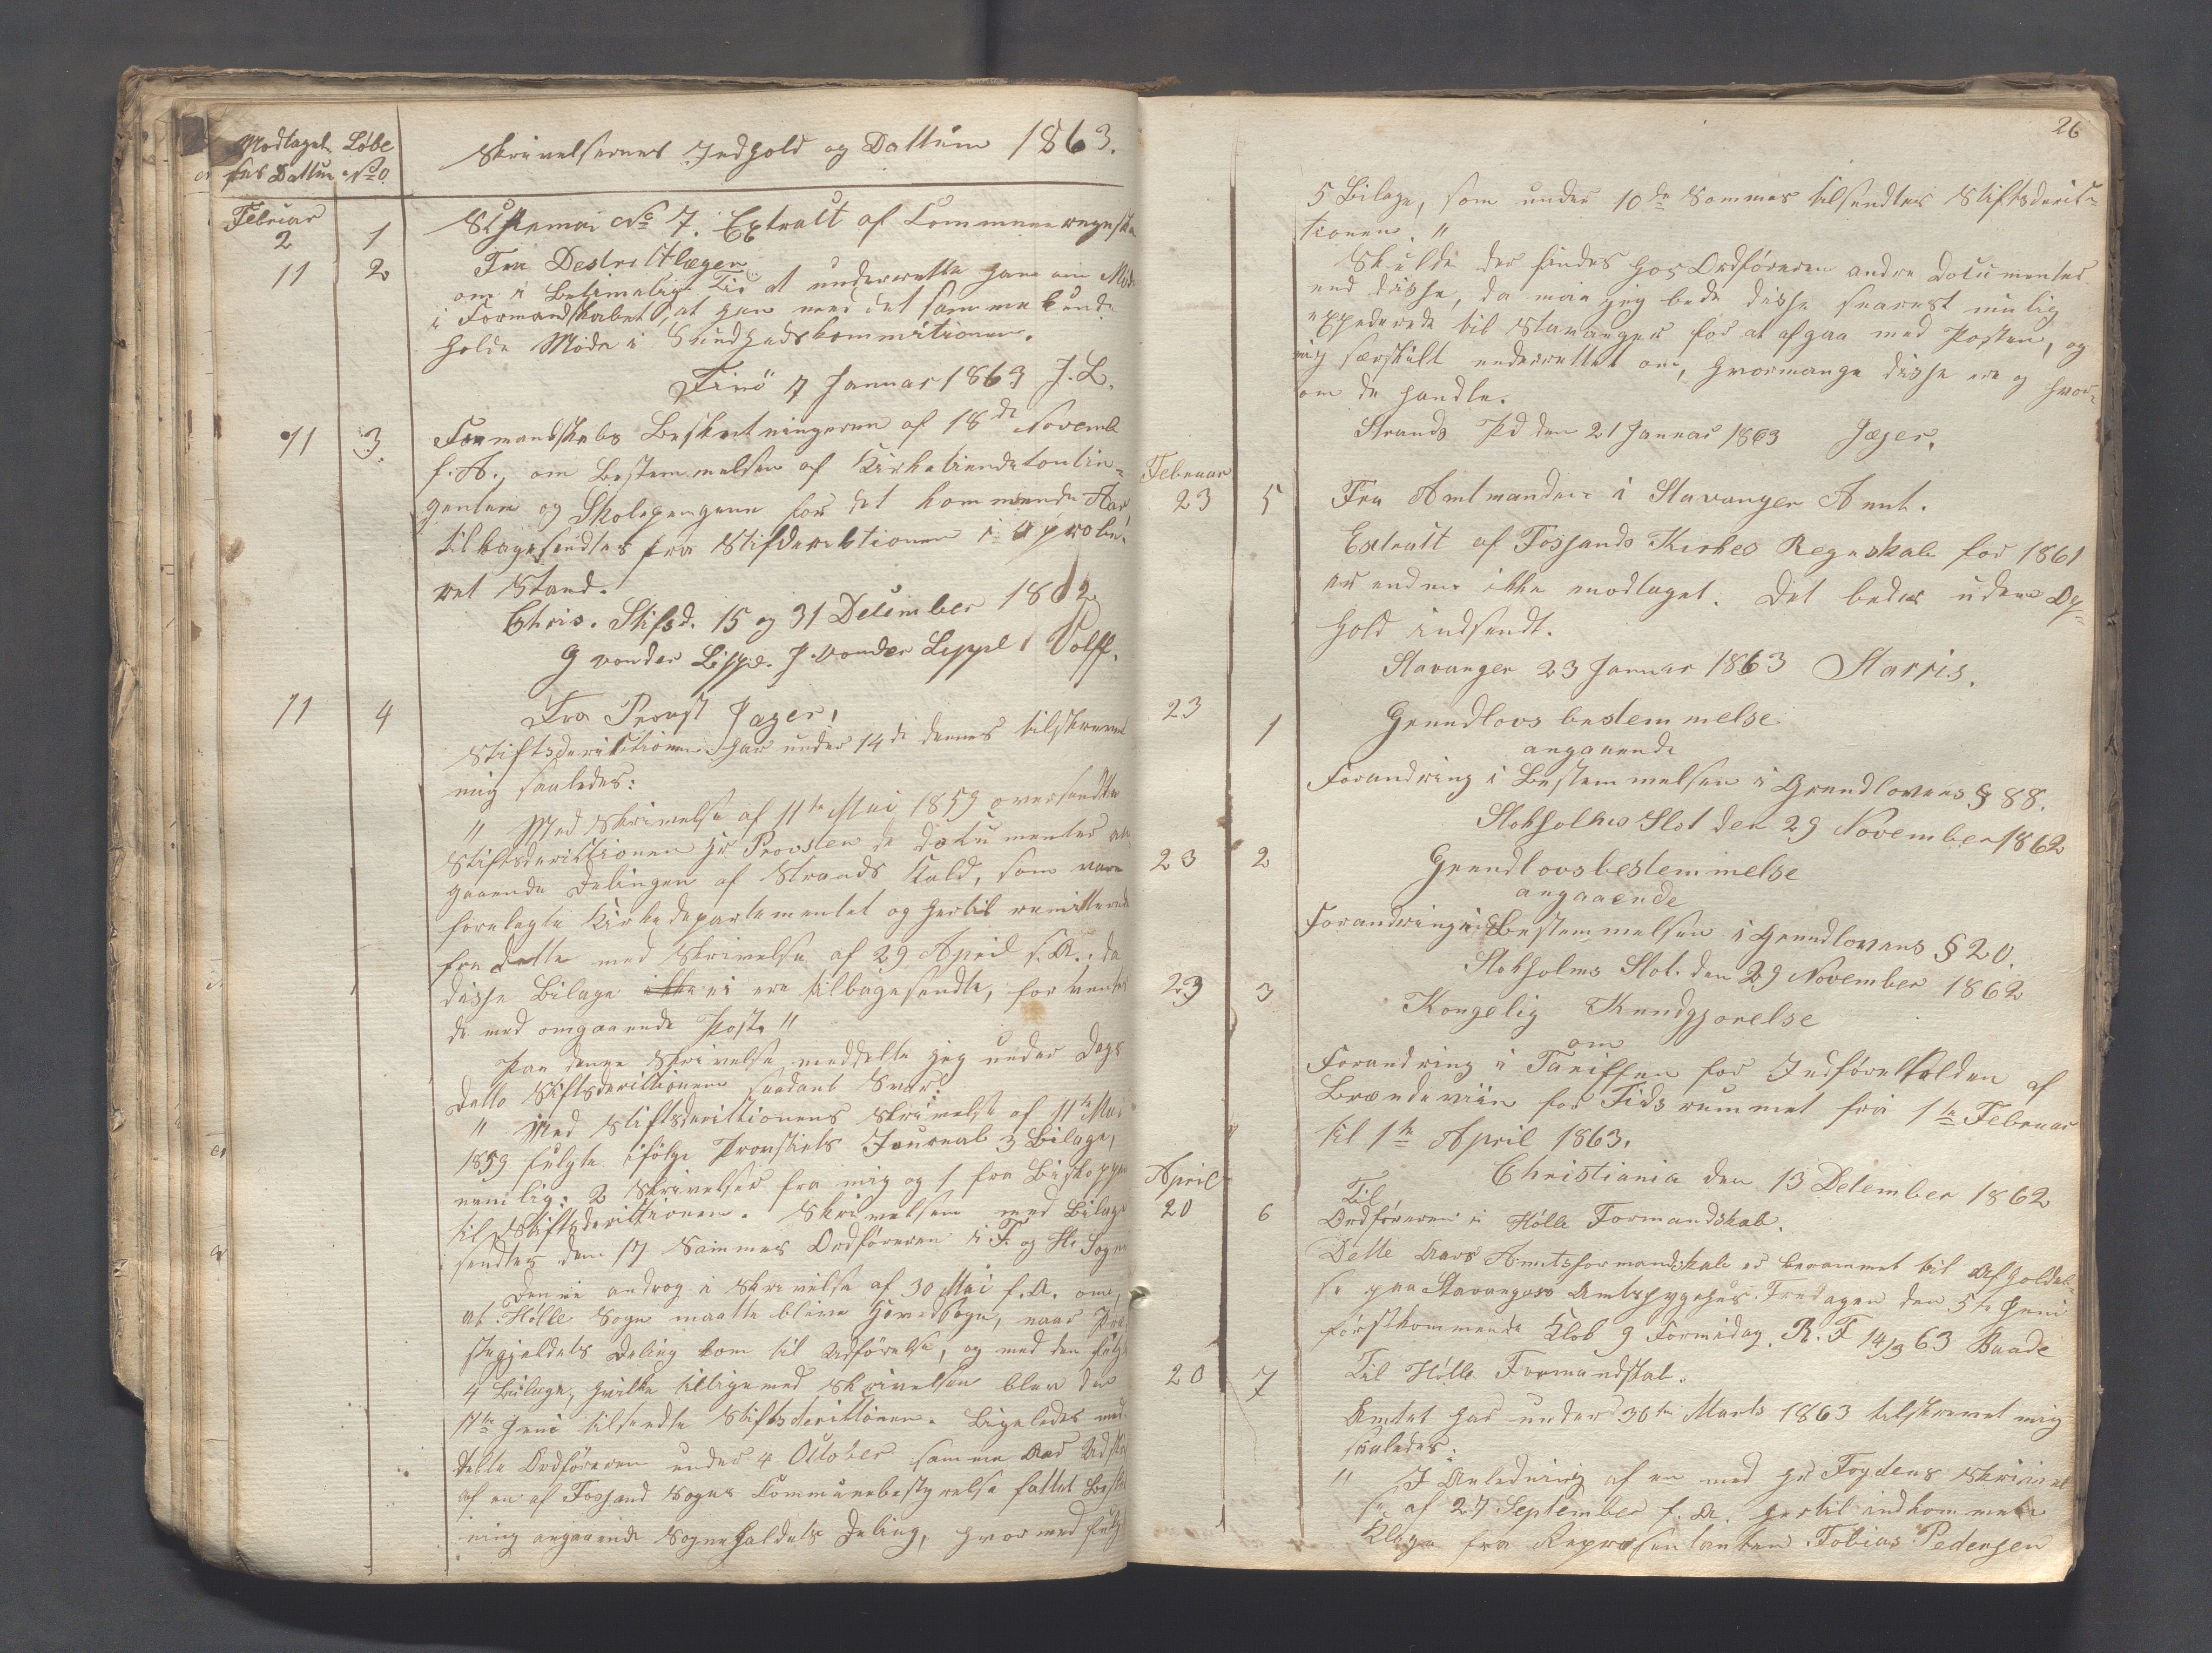 Modtagel Løbe
ses Dattum No
Skrivelsernes Indhold og Dattum 1863.
Februar
2 1 Schemai No 7. Extrakt af Communeregnska
11 2 Fra Destriktlægen
om i Betimelig Tid at underrette ham om Møde
i Formandskabet, at han med det samme kunde
holde Møde i Sundhedskommitionen.
Finö 7 Januar 1863 J. L.
11 3. Formandskabs Beslutningerne af 18de Novemb
f. A., om Bestemmelsen af Kirketiendekontin-
genten og Skolepengene for det kommende Aar
tilbagesendtes fra Stifderektionen i aprobe-
ret Stand.
Chris. Stifsd. 15 og 31 December 1862
G vonder Lippe. J. vonder Lippe / Wolff.
11 4 Fra Provst Jæger,
Stiftsderiktionen har under 14de dennes tilskrevet
mig saaledes:
" Med Skrivelse af 11te Mai 1859 oversendte
Stiftsderiktionen Hr Provsten de Dokumenter an-
gaaende Delingen af Strands Kald, som vare
forelagte Kirkedepartementet og hertil remitterede
fra dette med Skrivelse af 29 April s. A., da
disse Bilage ikke ei ere tilbagesendte, forventes
de med omgaaende Post. "
Paa denne Skrivelse meddelte jeg under Dags
Datto Stiftsderiktionen saadant Svar:
" Med Stiftsderiktionens Skrivelse af 11te Mai
1859 fulgte ifölge Provstiets Journal 3 Bilage,
nemlig: 2 Skrivelser fra mig og 1 fra Biskoppen
til Stiftsderiktionen. Skrivelsen med Bilage
sendtes den 17 Sammes Ordföreren i F. og H. Sogne
Denne androg i Skrivelse af 30 Mai s. A. om,
at Hölle Sogn maatte blive Hovedsogn, naar Præ-
stegjeldets Deling kom til Udförelse, og med den fulgte
4 Bilage, hvilke tilligemed Skrivelsen blev den
11te Juni tilsendte Stiftsderiktionen. Ligeledes med-
delte Ordföreren under 4 October samme Aar Udskr
af en af Fossand Sogns Communebestyrelse fattet Beslut-
ning angaaende Sognekaldets Deling, hvormed fulgte
26
5 Bilage, som under 10de Sammes tilsendtes Stiftsderik-
tionen. "
Skulde der findes hos Ordföreren andre Dokumenter
end disse, da maa jeg bede disse snarest mulig
expederede til Stavanger for at afgaa med Posten, og
mig særskilt underrettet om, hvormange disse ere og hvor-
om de handle.
Strands Pd den 21 Januar 1863 Jæger.
Februar
23 5 Fra Amtmanden i Stavanger Amt.
Extrakt af Fossands Kirkes Regnskab for 1861
er endnu ikke modtaget. Det bedes uden Op-
hold indsendt.
Stavanger 23 Januar 1863
23 1 Grundlovs bestemmelse
angaaende
Forandring i Bestemmelsen i Grundlovens § 88.
Stokholms Slot den 29 November 1862
23 2 Grundlovsbestemmelse
angaaende
Forandring i Bestemmelsen i Grundlovens § 20.
Stokholms Slot. den 29 November 1862
23 3 Kongelig Kundgjorelse
om
Forandring i Tariffen for Indförseltolden af
Brændeviin for Tidsrummet fra 1te Februar
til 1te April 1863.
Christiania den 13 Desember 1862
April
20 6 Til
Ordföreren i Hölle Formandskab.
Dette Aars Amtsformandskab er berammet til Afholdel-
se paa Stavangers Amtssygehus Fredagen den 5te Juni
förstkommende Klok 9 Formidag. R. F 14/3 63 Baade
20 7 Til Hölle Formandskab.
Amtet har under 30te Marts 1863 tilskrevet mig
saaledes:
" I Anledning af en med Hr Fogdens Skrivel
se af 27 September f. A. hertil indkommen
Klage fra Repræsentanten Tobias Pedersen